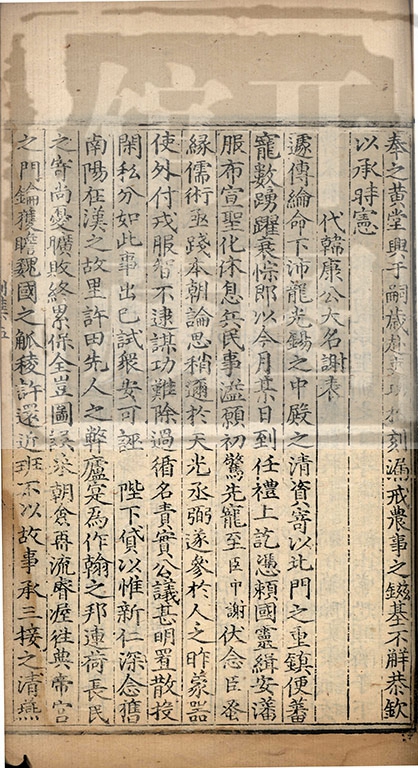 奉之黄堂興于嗣歲刻漏戒農事之鎡基不解恭欽
以承時憲
代韓康公大名謝表
遽傳綸命下沛龍光錫之中殿之清資寄以北門之重鎮便蕃
寵數踴躍衷悰即以今月某日到任禮上訖憑賴國靈緝安藩
服布宣聖化休息兵民事溢願初驚先寵至臣中謝伏念臣蚤
緣儒術亟踐本朝論思稍邇於天光丞弼遂參於人之昨蒙器
使外付戎服智不逮謀功難除過循名責實公議甚明置散投
閑私分如此事出已試衆安可誣 陛下貸以惟新仁深念舊
南陽在漢之故里許田先人之弊廬寔為作翰之邦連荷長民
之寄尚憂曠敗終累保全豈圖誤朝食再流辱渥往典帝宫
之門鑰獲瞻魏國之觚稜許還近班不以故事承三接之清燕